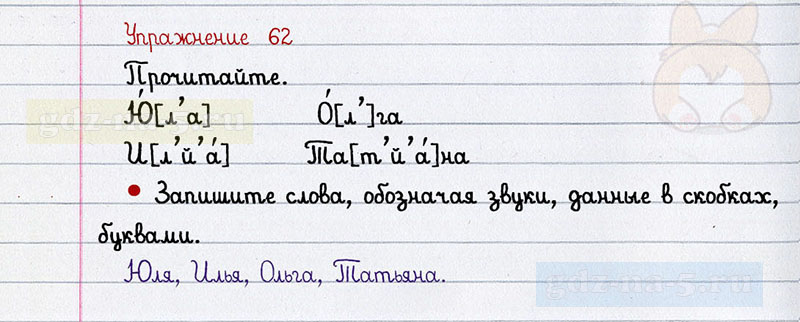 Упражнение 62
Прочитайте.
Ю́[л’а] О́[л’]га
И[л’й’а́] Та[т’й’а́]на
• Запишите слова, обозначая звуки, данные в скобках,
буквами.
Юля, Илья, Ольга, Татьяна.
gdz-na-5.ru
gdz-na-5.ru